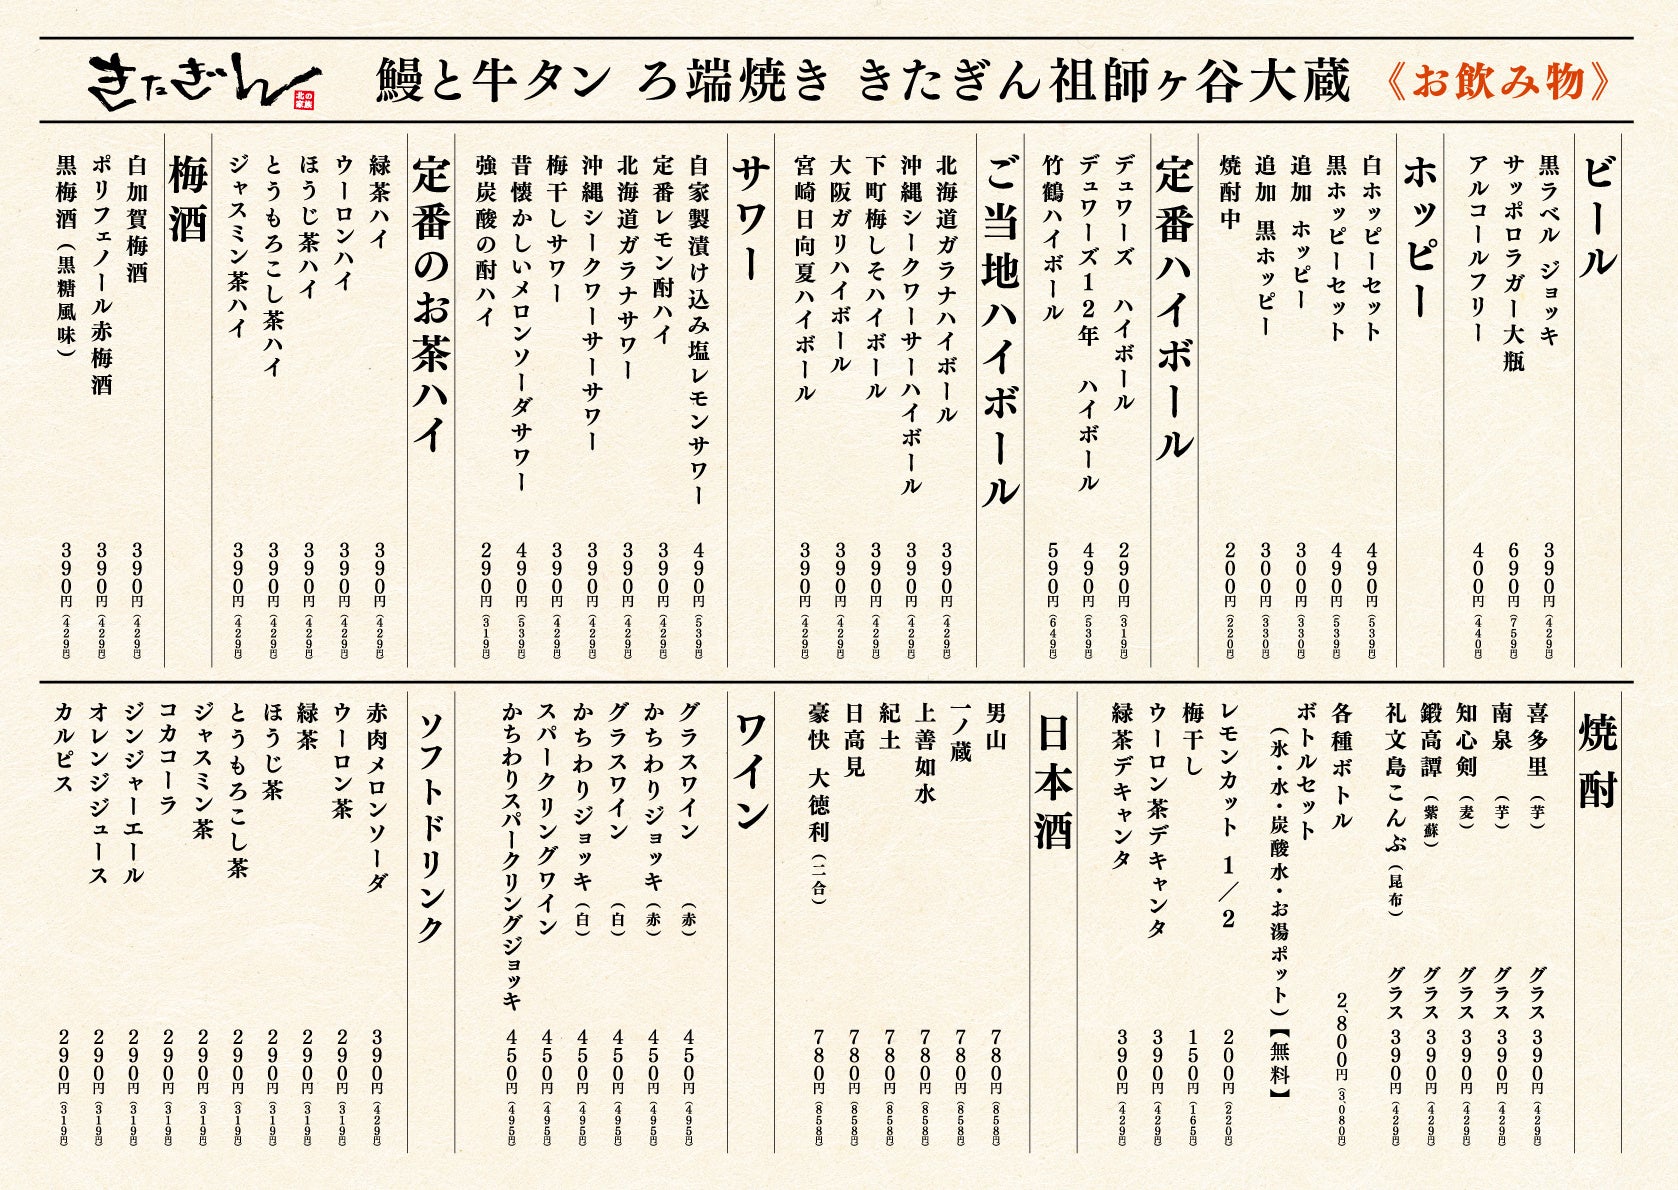 きたぎん
北の家族
鰻と牛タン ろ端焼き きたぎん祖師ヶ谷大蔵
《お飲み物》
ビール
黒ラベル ジョッキ 390円(429円)
サッポロラガー大瓶 690円(759円)
アルコールフリー 400円(440円)
ホッピー
白ホッピーセット 490円(539円)
黒ホッピーセット 490円(539円)
追加 ホッピー 300円(330円)
追加 黒ホッピー 300円(330円)
焼酎中 200円(220円)
定番ハイボール
デュワーズ ハイボール 290円(319円)
デュワーズ12年 ハイボール 490円(539円)
竹鶴ハイボール 590円(649円)
ご当地ハイボール
北海道ガラナハイボール 390円(429円)
沖縄シークワーサーハイボール 390円(429円)
下町梅しそハイボール 390円(429円)
大阪ガリハイボール 390円(429円)
宮崎日向夏ハイボール 390円(429円)
サワー
自家製漬け込み塩レモンサワー 490円(539円)
定番レモン酎ハイ 390円(429円)
北海道ガラナサワー 390円(429円)
沖縄シークワーサーサワー 390円(429円)
梅干しサワー 390円(429円)
昔懐かしいメロンソーダサワー 490円(539円)
強炭酸の酎ハイ 290円(319円)
定番のお茶ハイ
緑茶ハイ 390円(429円)
ウーロンハイ 390円(429円)
ほうじ茶ハイ 390円(429円)
とうもろこし茶ハイ 390円(429円)
ジャスミン茶ハイ 390円(429円)
梅酒
白加賀梅酒 390円(429円)
ポリフェノール赤梅酒 390円(429円)
黒梅酒(黒糖風味) 390円(429円)
焼酎
喜多里(芋) グラス 390円(429円)
南泉(芋) グラス 390円(429円)
知心剣(麦) グラス 390円(429円)
鍛高譚(紫蘇) グラス 390円(429円)
礼文島こんぶ(昆布) グラス 390円(429円)
各種ボトル 2,800円(3,080円)
ボトルセット
(氷・水・炭酸水・お湯ポット)【無料】
レモンカット 1/2 200円(220円)
梅干し 150円(165円)
ウーロン茶デキャンタ 390円(429円)
緑茶デキャンタ 390円(429円)
日本酒
男山 780円(858円)
一ノ蔵 780円(858円)
上善如水 780円(858円)
紀土 780円(858円)
日高見 780円(858円)
豪快 大徳利(二合) 780円(858円)
ワイン
グラスワイン(赤) 450円(495円)
かちわりジョッキ(赤) 450円(495円)
グラスワイン(白) 450円(495円)
かちわりジョッキ(白) 450円(495円)
スパークリングワイン 450円(495円)
かちわりスパークリングジョッキ 450円(495円)
ソフトドリンク
赤肉メロンソーダ 390円(429円)
ウーロン茶 290円(319円)
緑茶 290円(319円)
ほうじ茶 290円(319円)
とうもろこし茶 290円(319円)
ジャスミン茶 290円(319円)
コカコーラ 290円(319円)
ジンジャーエール 290円(319円)
オレンジジュース 290円(319円)
カルピス 290円(319円)